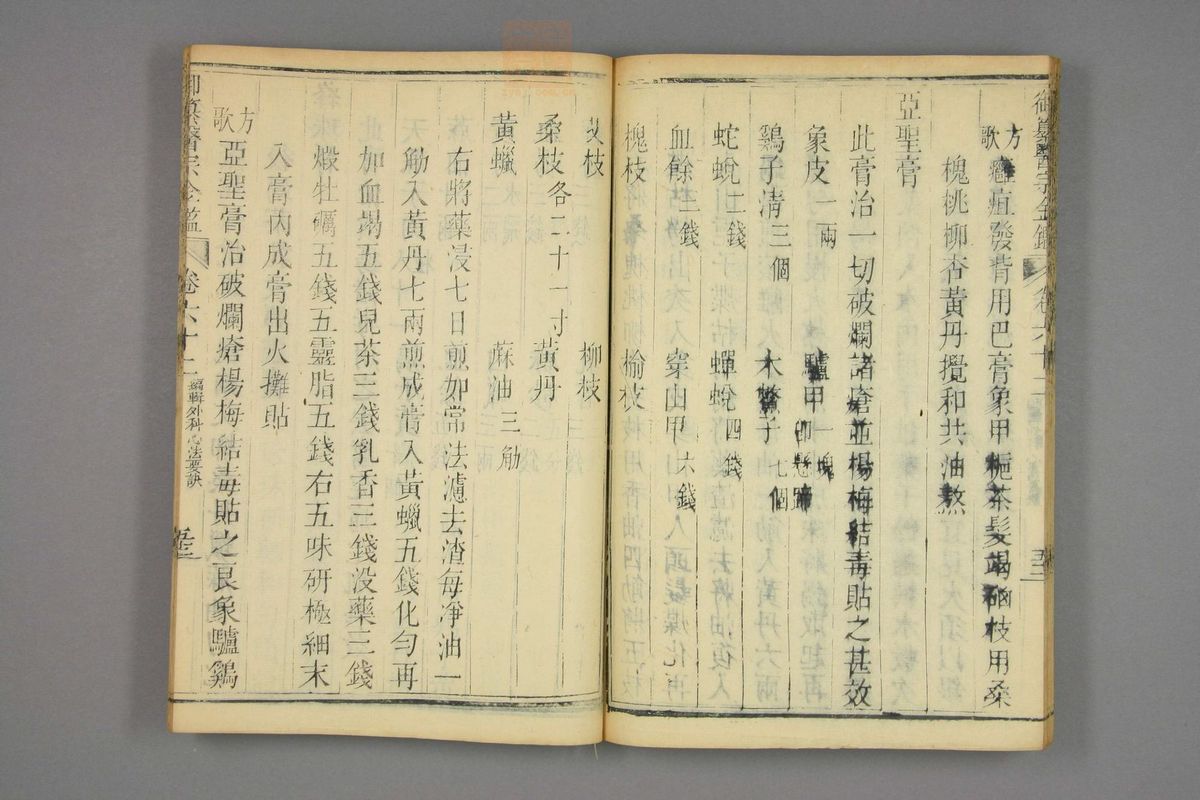 御纂醫宗金鑑 卷六十二
方歌 癰疽發背用巴膏象甲梔茶髮竭硇枝用桑
槐桃柳杏黃丹攪和共油熬
亞聖膏
此膏治一切破爛諸瘡並楊梅結毒貼之甚效
象皮一兩 驢甲一塊即懸蹄
鷄子清三個 木鱉子七個
蛇蛻二錢 蟬蛻四錢
血餘三錢 穿山甲六錢
槐枝 榆枝
艾枝 柳枝
桑枝各二十一寸 黃丹
黃蠟 麻油三觔
右將藥浸七日煎如常法濾去渣每淨油一
觔入黃丹七兩煎成膏入黃蠟五錢化勻再
加血竭五錢兒茶三錢乳香三錢没藥三錢
煅牡礪五錢五靈脂五錢右五味研極細末
入膏內成膏出火攤貼
方歌 亞聖膏治破爛瘡楊梅結毒貼之良象驢鷄
御纂醫宗金鑑 卷六十二 編輯外科心法要訣